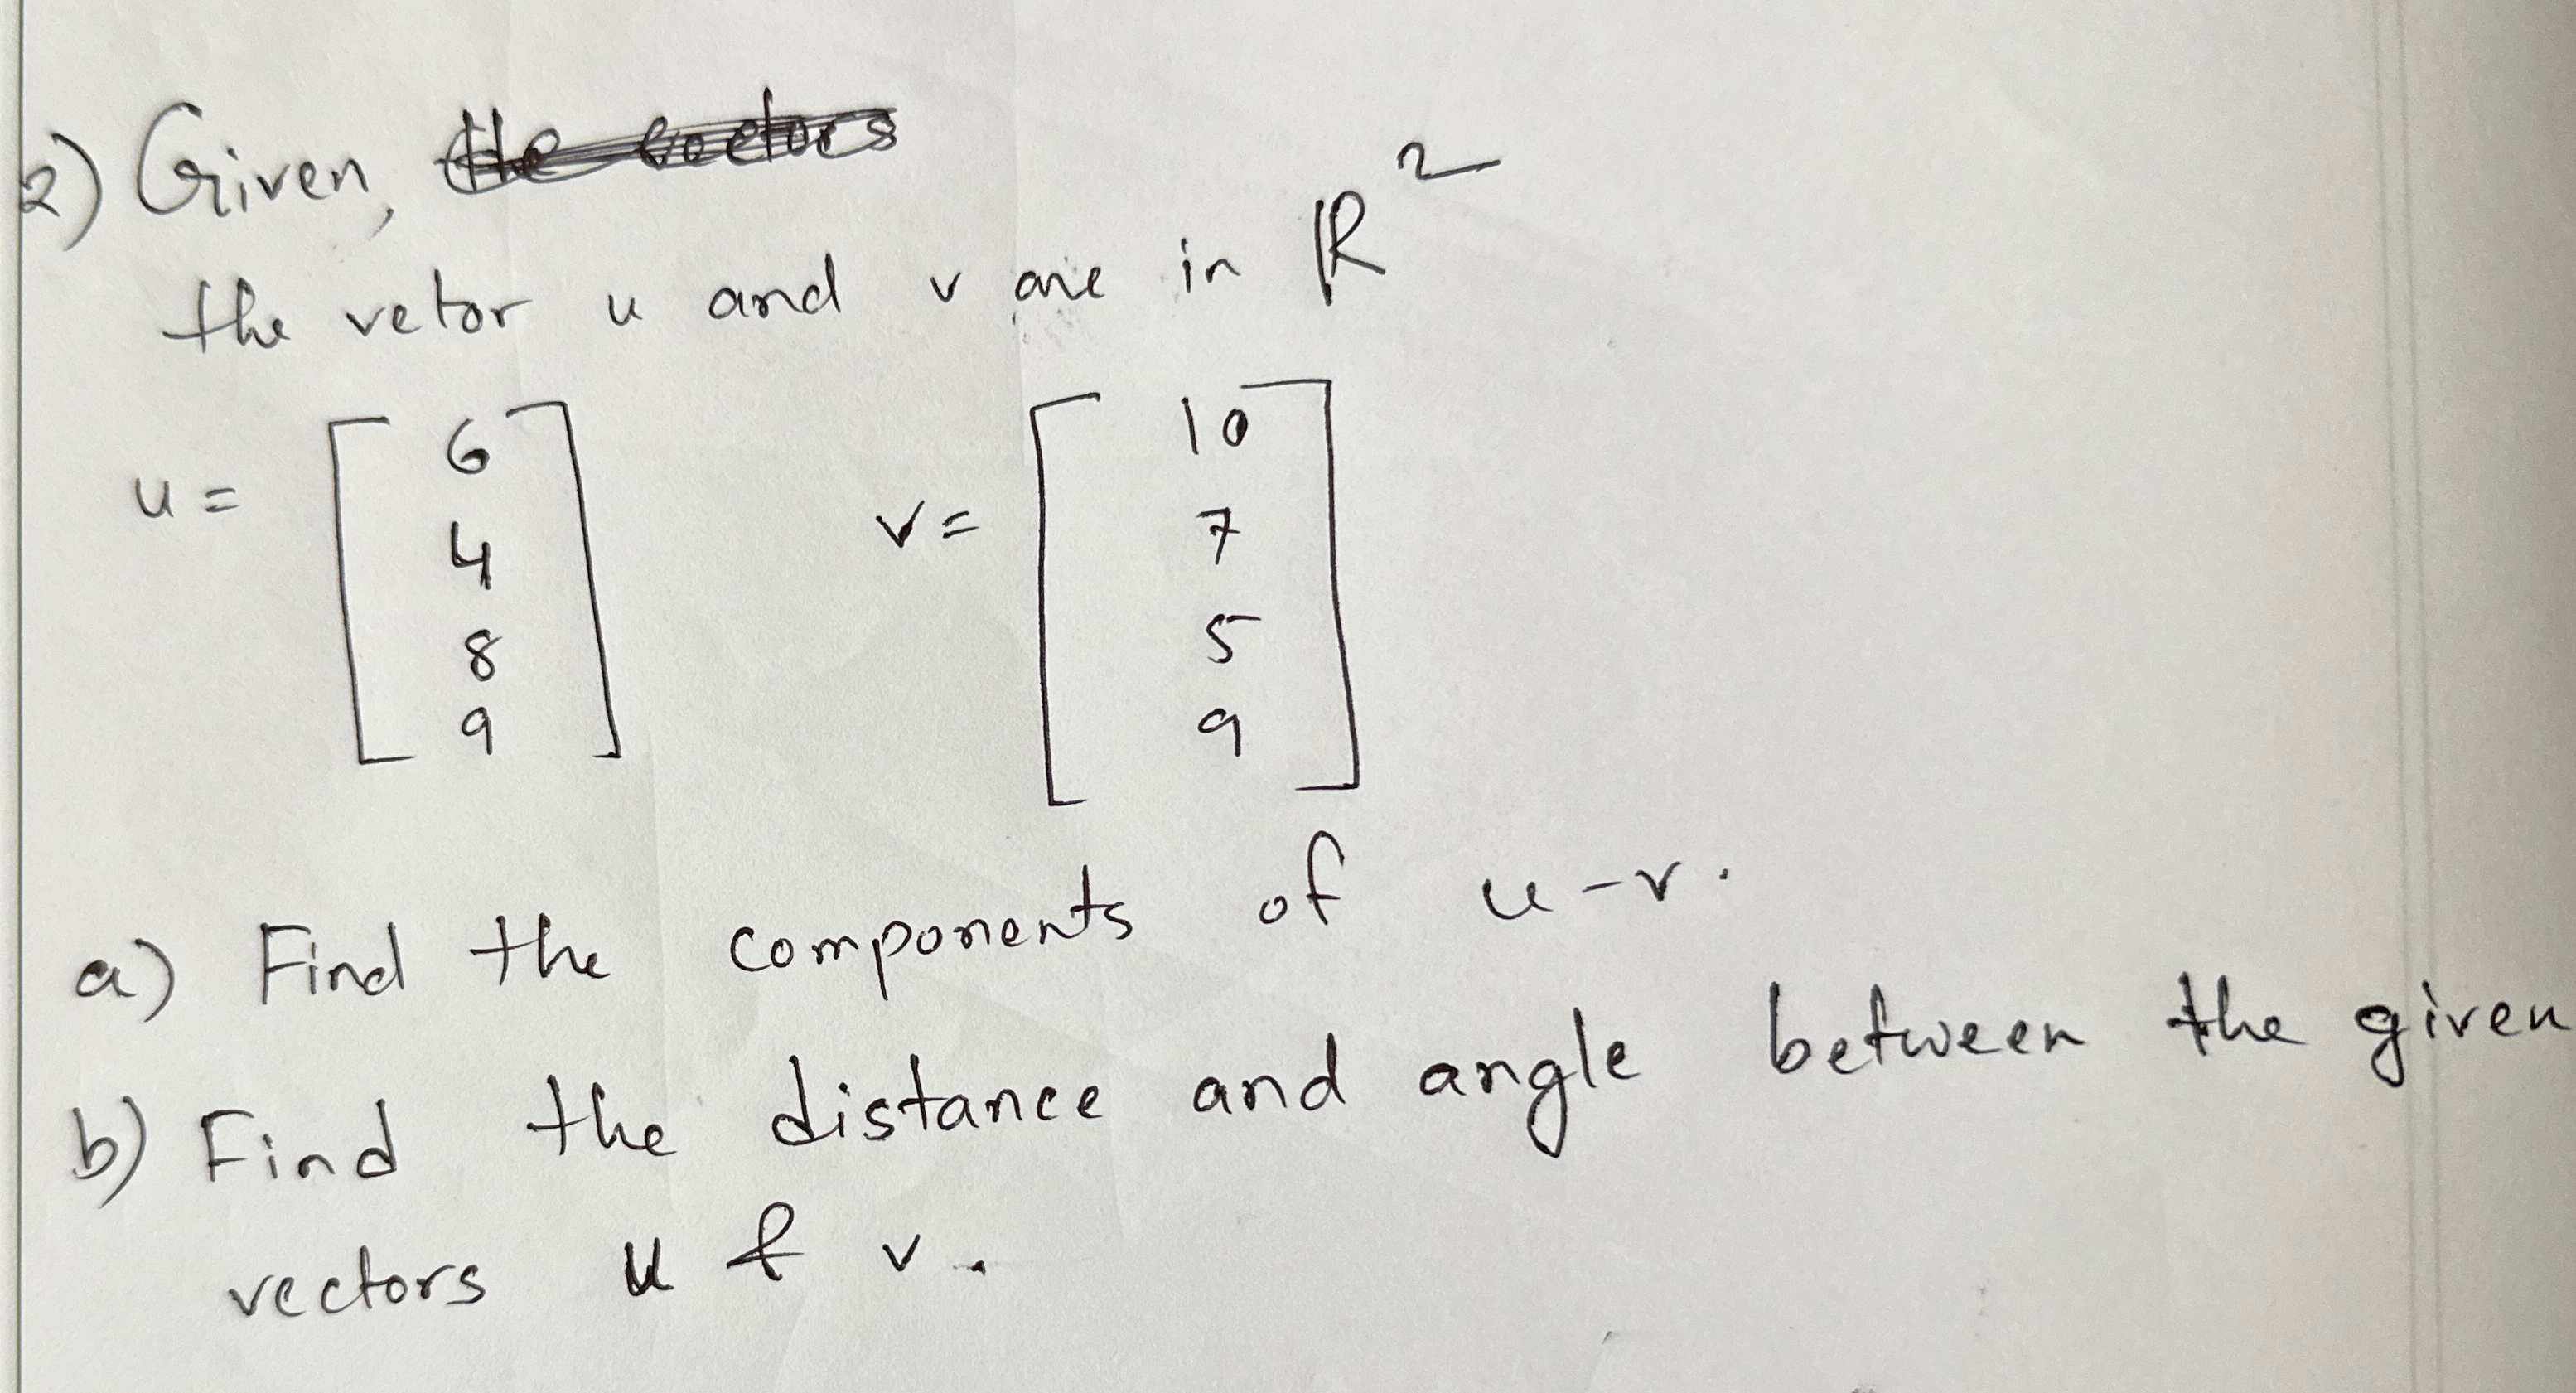 2) Given, the vectors
the vetor u and v are in ℝ²
u = [6 4 8 9] v = [10 7 5 9]
a) Find the components of u - v.
b) Find the distance and angle between the given
vectors u & v.